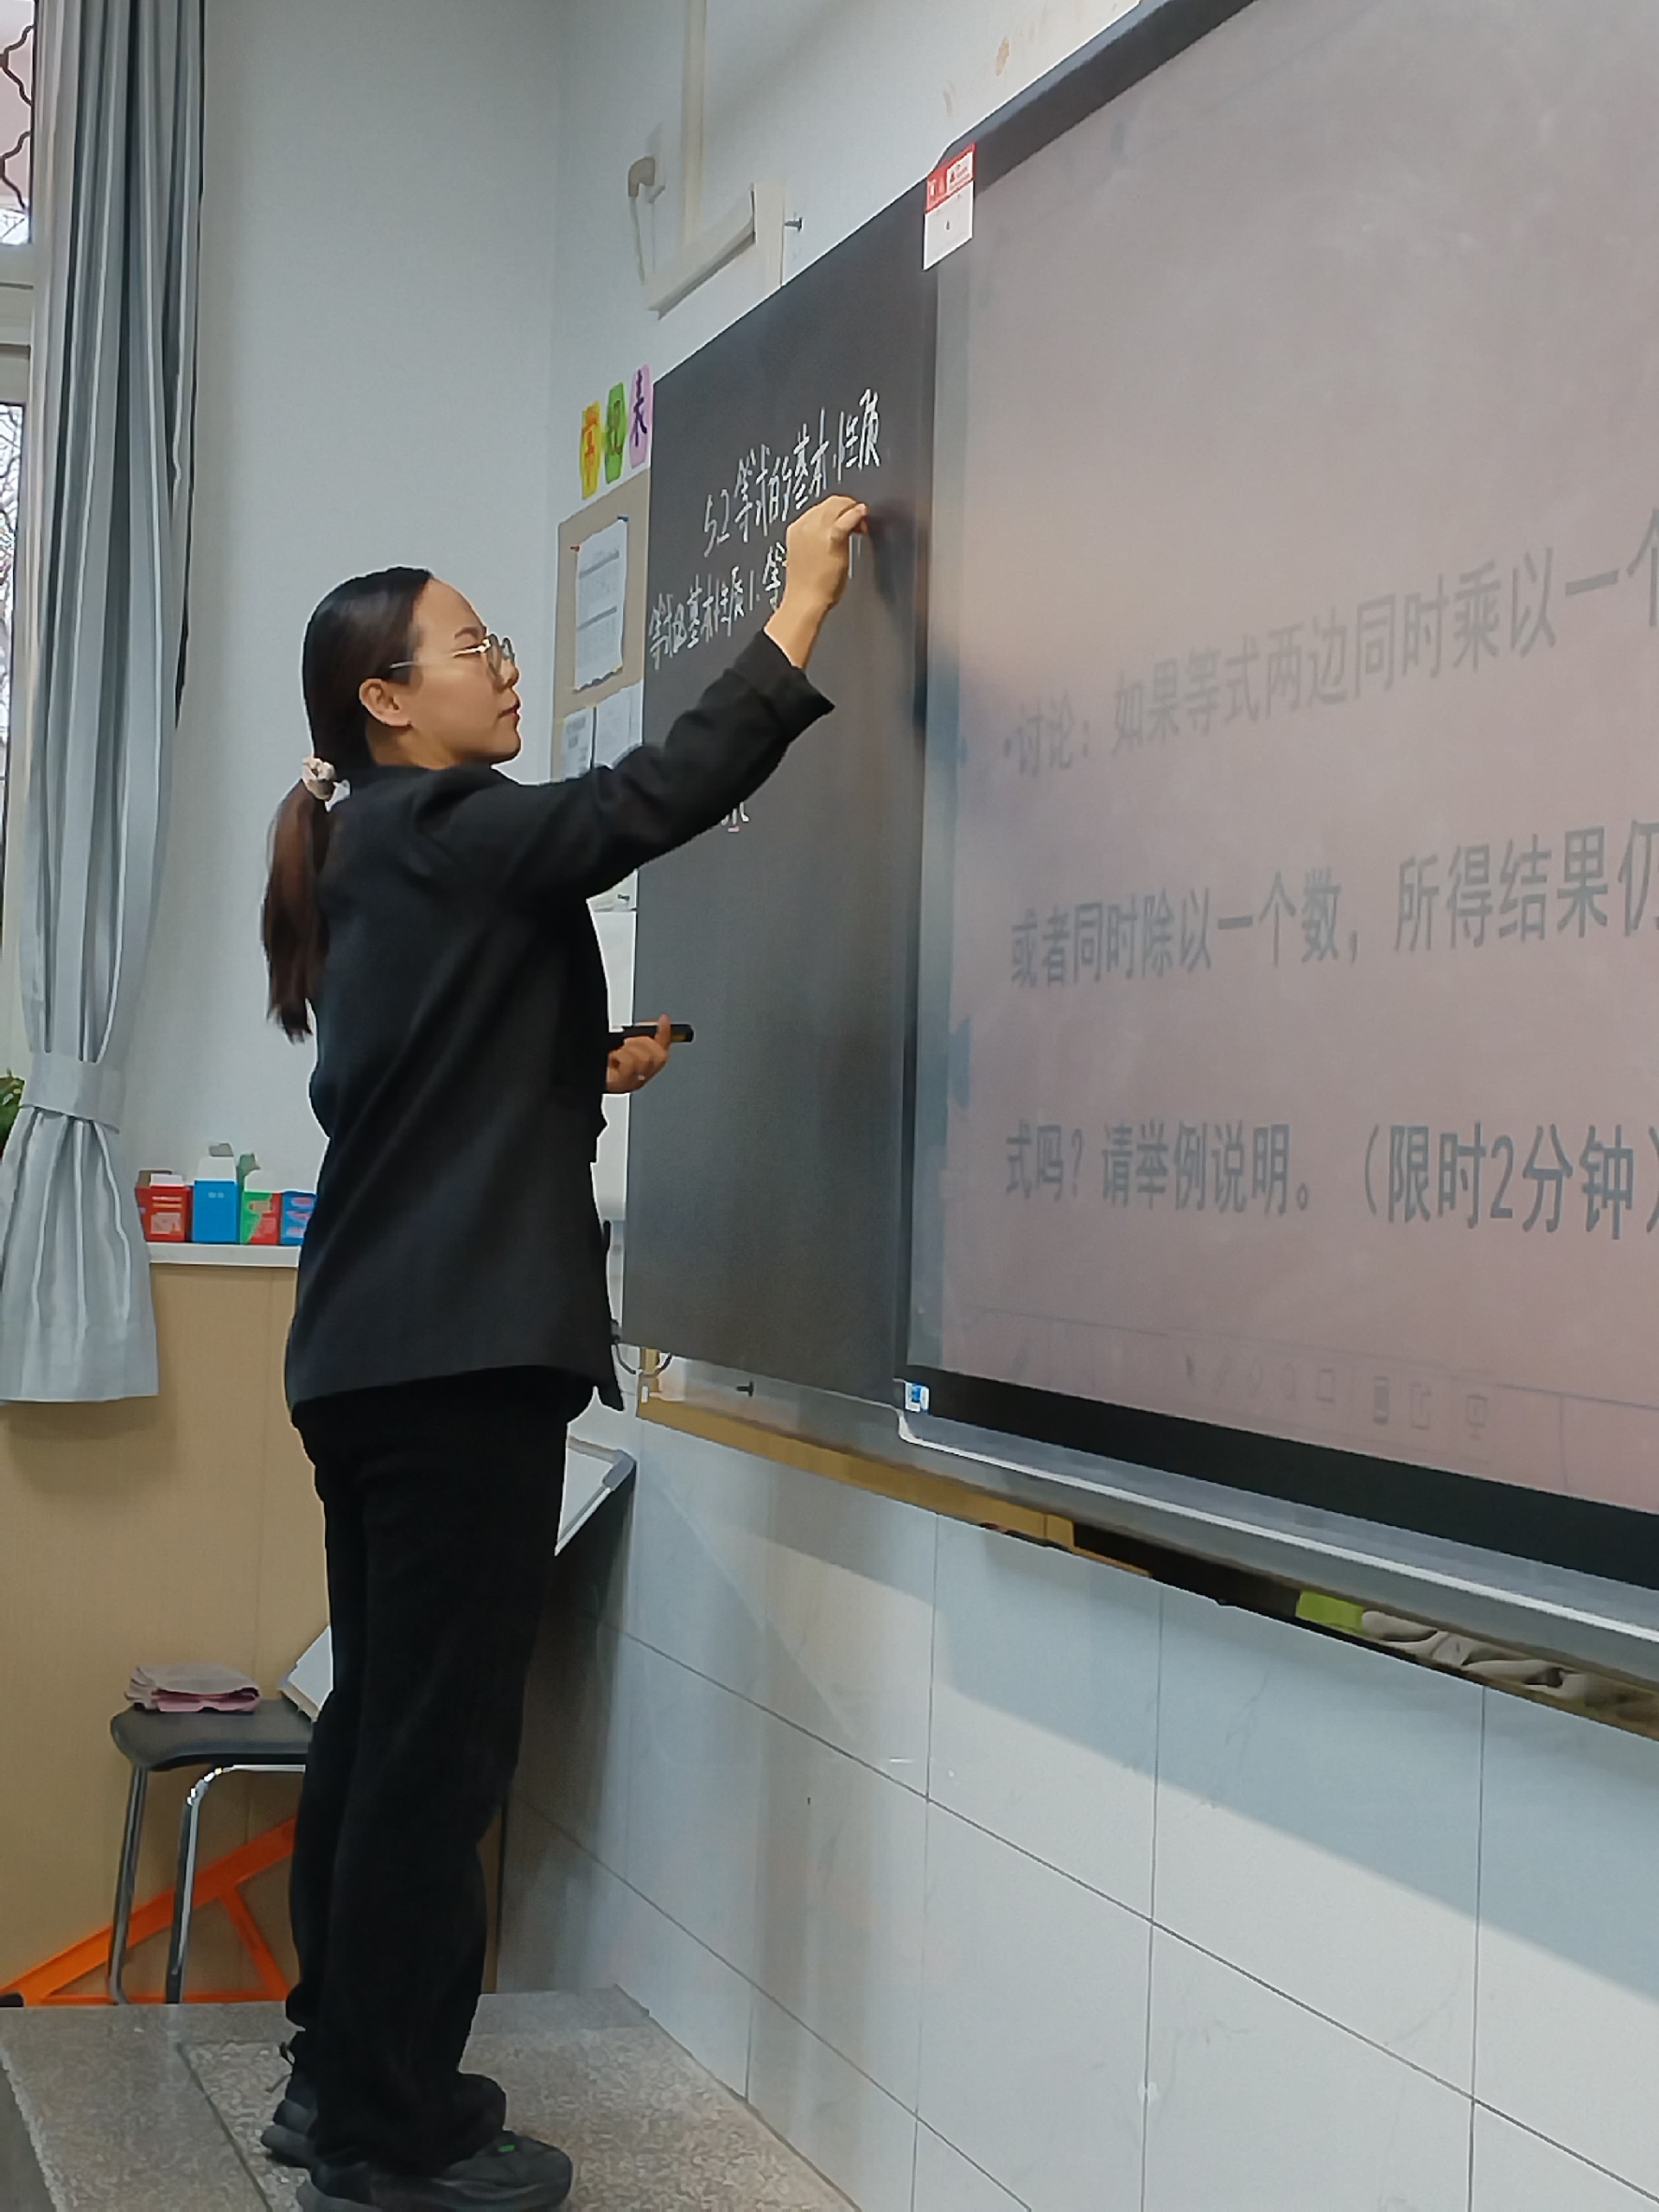 5.2 等式的基本性质
等式的基本性质1. 等
·讨论：如果等式两边同时乘以一个
或者同时除以一个数，所得结果仍
式吗？请举例说明。（限时2分钟）